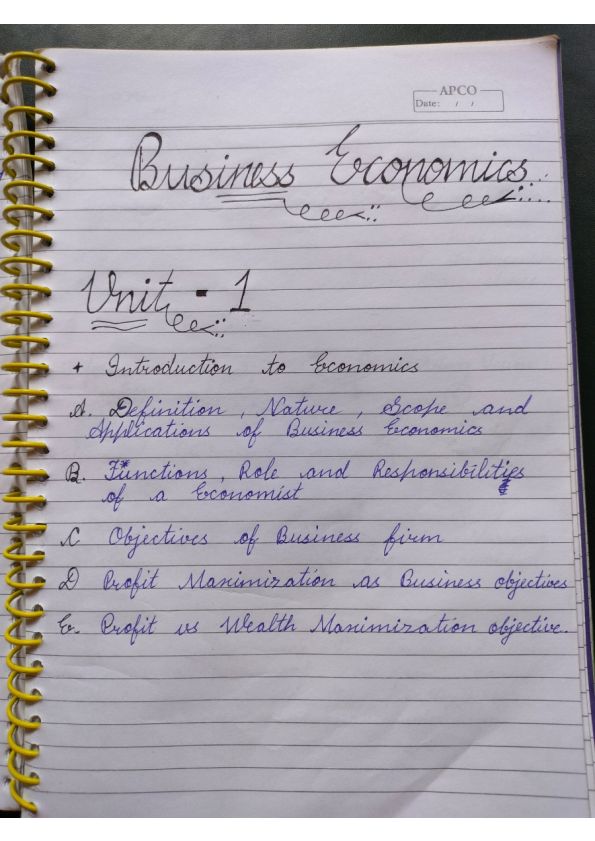 APCO
Date: / /
Business Economics
Unit - 1
+ Introduction to Economics
A. Definition, Nature, Scope and
Applications of Business Economics
B. Functions, Role and Responsibilities
of a Economist
C Objectives of Business firm
D Profit Maximization as Business objectives
E. Profit vs Wealth Maximization objective.